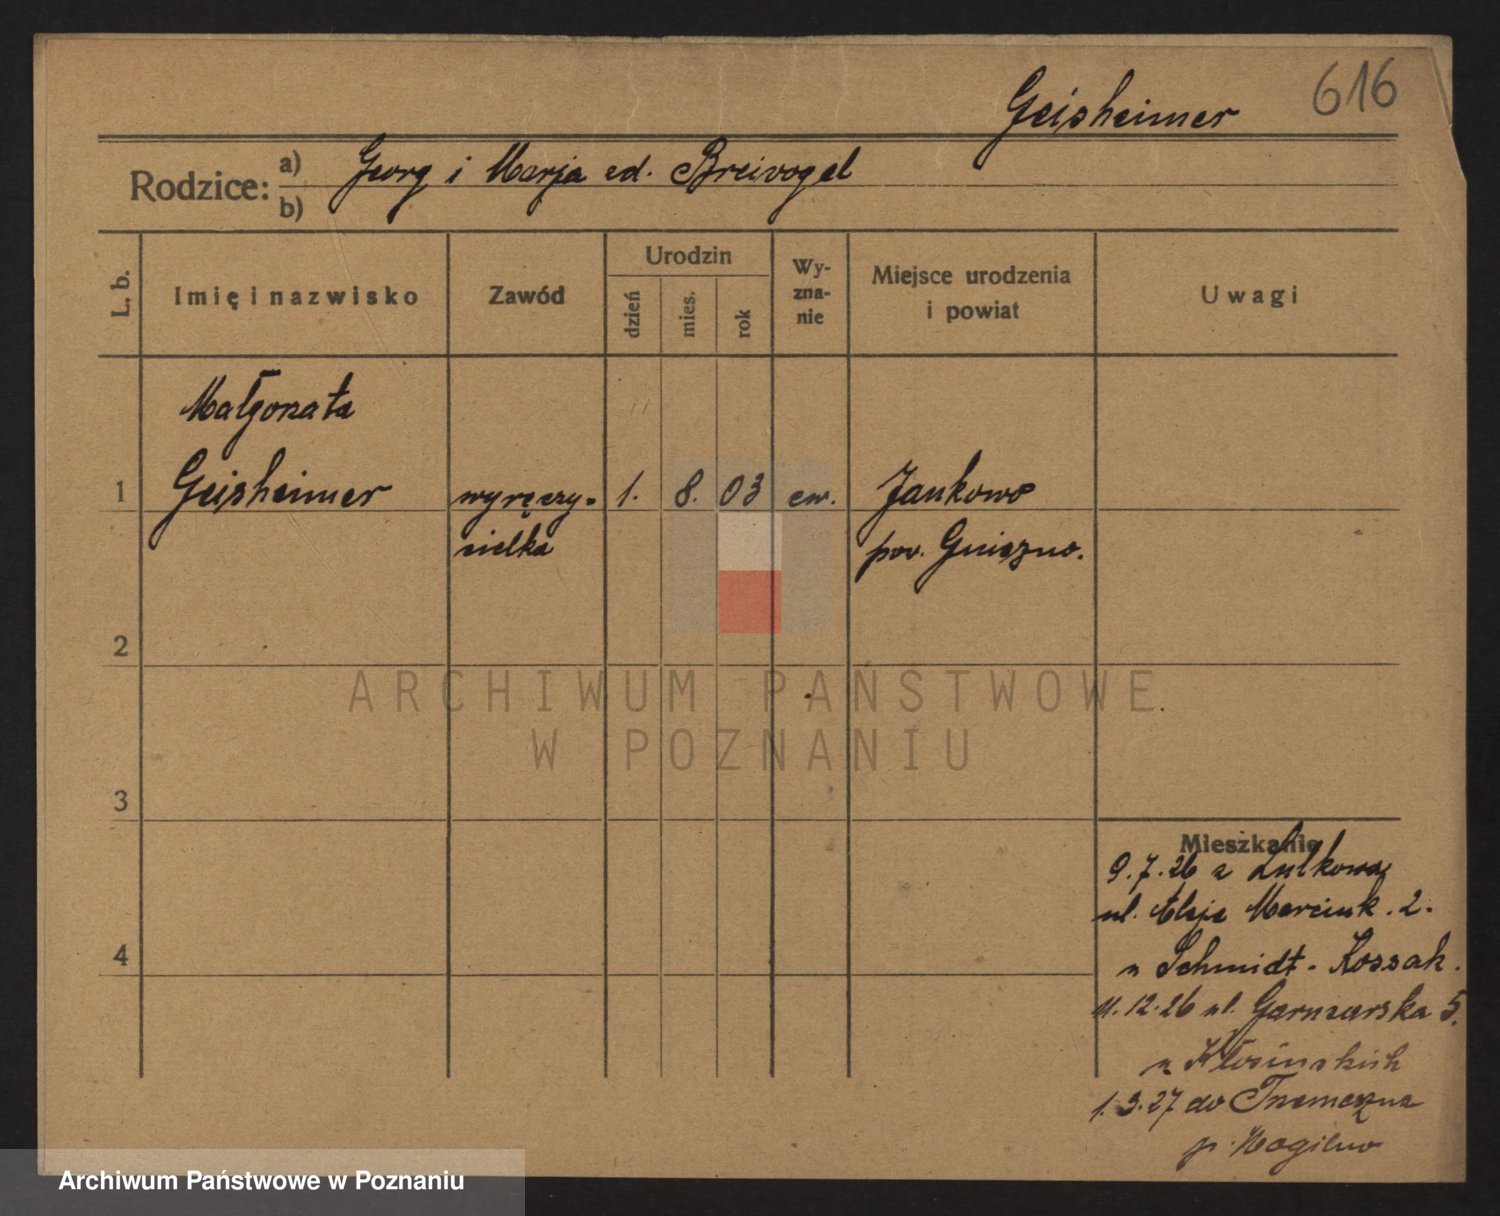 616
Geisheimer
Rodzice: a) Georg i Marja ed. Breivogel
b)
L. b.
Imię i nazwisko
Zawód
Urodzin
dzień
mies.
rok
Wy-
zna-
nie
Miejsce urodzenia
i powiat
Uwagi
Małgorzata
1 Geisheimer wyręczy- 1. 8. 03 ew. Jankowo
cielka pow. Gniezno.
2
3
4
Mieszkanie
9.7.26 z Lulkowa
ul. Aleje Marcink. 2.
u Schmidt - Kossak.
11.12.26 ul. Garncarska 5.
u Kłosinskich
1.3.27 do Trzemeszna
p. Mogilno
ARCHIWUM PAŃSTWOWE
W POZNANIU
Archiwum Państwowe w Poznaniu